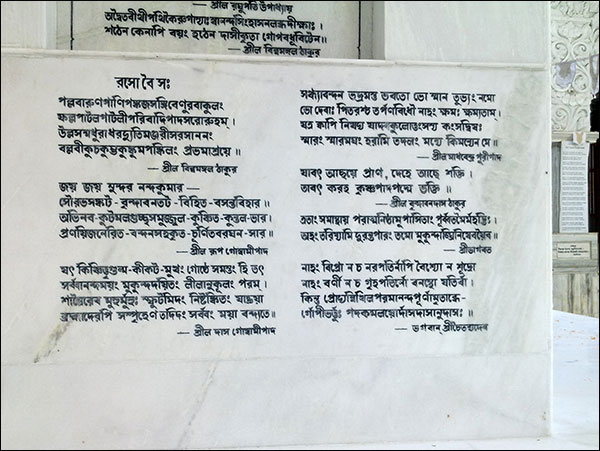 — শ্রীল রঘুপতি উপাধ্যায়
অদ্বৈতবীথীপথিকৈরুপাস্যাঃ স্বানন্দসিংহাসনলব্ধদীক্ষাঃ।
শঠেন কেনাপি বয়ং হঠেন দাসীকৃতা গোপবধূবিটেন॥
— শ্রীল বিল্বমঙ্গল ঠাকুর
রসো বৈ সঃ
পল্লবারুণপাণিপঙ্কজসঙ্গিবেণুরবাকুলং
ফুল্লপাটলপাটলীপরিবাদিপাদসরোরুহম্।
উল্লসন্মধুরাধরদ্যুতিমঞ্জরীসরসাননং
বল্লবীকুচকুম্ভকুঙ্কুমপঙ্কিলং প্রভুমাশ্রয়ে॥
— শ্রীল বিল্বমঙ্গল ঠাকুর
জয় জয় সুন্দর নন্দকুমার —
সৌরভসঙ্কট - বৃন্দাবনতট - বিহিত - বসন্তবিহার॥
অভিনব - কুটমলগুচ্ছসমুজ্জ্বল - কুঞ্চিত - কুন্তল - ভার।
প্রণয়িজনেরিত - বন্দনসহকৃত - চূর্ণিতবরঘন - সার॥
— শ্রীল রূপ গোস্বামীপাদ
যৎ কিঞ্চিত্তৃণগুল্ম - কীকট - মুখং গোষ্ঠে সমস্তং হি তৎ
সর্ব্বানন্দময়ং মুকুন্দদয়িতং লীলানুকূলং পরম্।
শাস্ত্রৈরেব মুহুর্মুহুঃ স্ফুটমিদং নিষ্টঙ্কিতং যাচ্ঞয়া
ব্রহ্মাদেরপি সস্পৃহেণ তদিদং সর্ব্বং ময়া বন্দ্যতে॥
— শ্রীল দাস গোস্বামীপাদ
সন্ধ্যাবন্দন ভদ্রমস্তু ভবতো ভো স্নান তুভ্যং নমো
ভো দেবাঃ পিতরশ্চ তর্পণবিধৌ নাহং ক্ষমঃ ক্ষম্যতাম্।
যত্র ক্বাপি নিষদ্য যাদবকুলোত্তংসস্য কংসদ্বিষঃ
স্মারং স্মারমঘং হরামি তদলং মন্যে কিমন্যেন মে॥
— শ্রীল মাধবেন্দ্র পুরীপাদ
যাবৎ আছয়ে প্রাণ, দেহে আছে শক্তি।
তাবৎ করহ কৃষ্ণপাদপদ্মে ভক্তি॥
— শ্রীল বৃন্দাবনদাস ঠাকুর
এতাং সমাস্থায় পরাত্মনিষ্ঠামুপাসিতাং পূর্ব্বতমৈর্মহদ্ভিঃ।
অহং তরিষ্যামি দুরন্তপারং তমো মুকুন্দাঙ্ঘ্রিনিষেবয়ৈব॥
— শ্রীভাগবত
নাহং বিপ্রো ন চ নরপতির্বাপি বৈশ্যো ন শূদ্রো
নাহং বর্ণী ন চ গৃহপতির্বো বনস্থো যতির্বা।
কিন্তু প্রোদ্যন্নিখিলপরমানন্দপূর্ণামৃতাব্ধে-
র্গোপীভর্ত্তুঃ পদকমলয়োর্দাসদাসানুদাসঃ॥
— ভগবান্ শ্রীচৈতন্যদেব